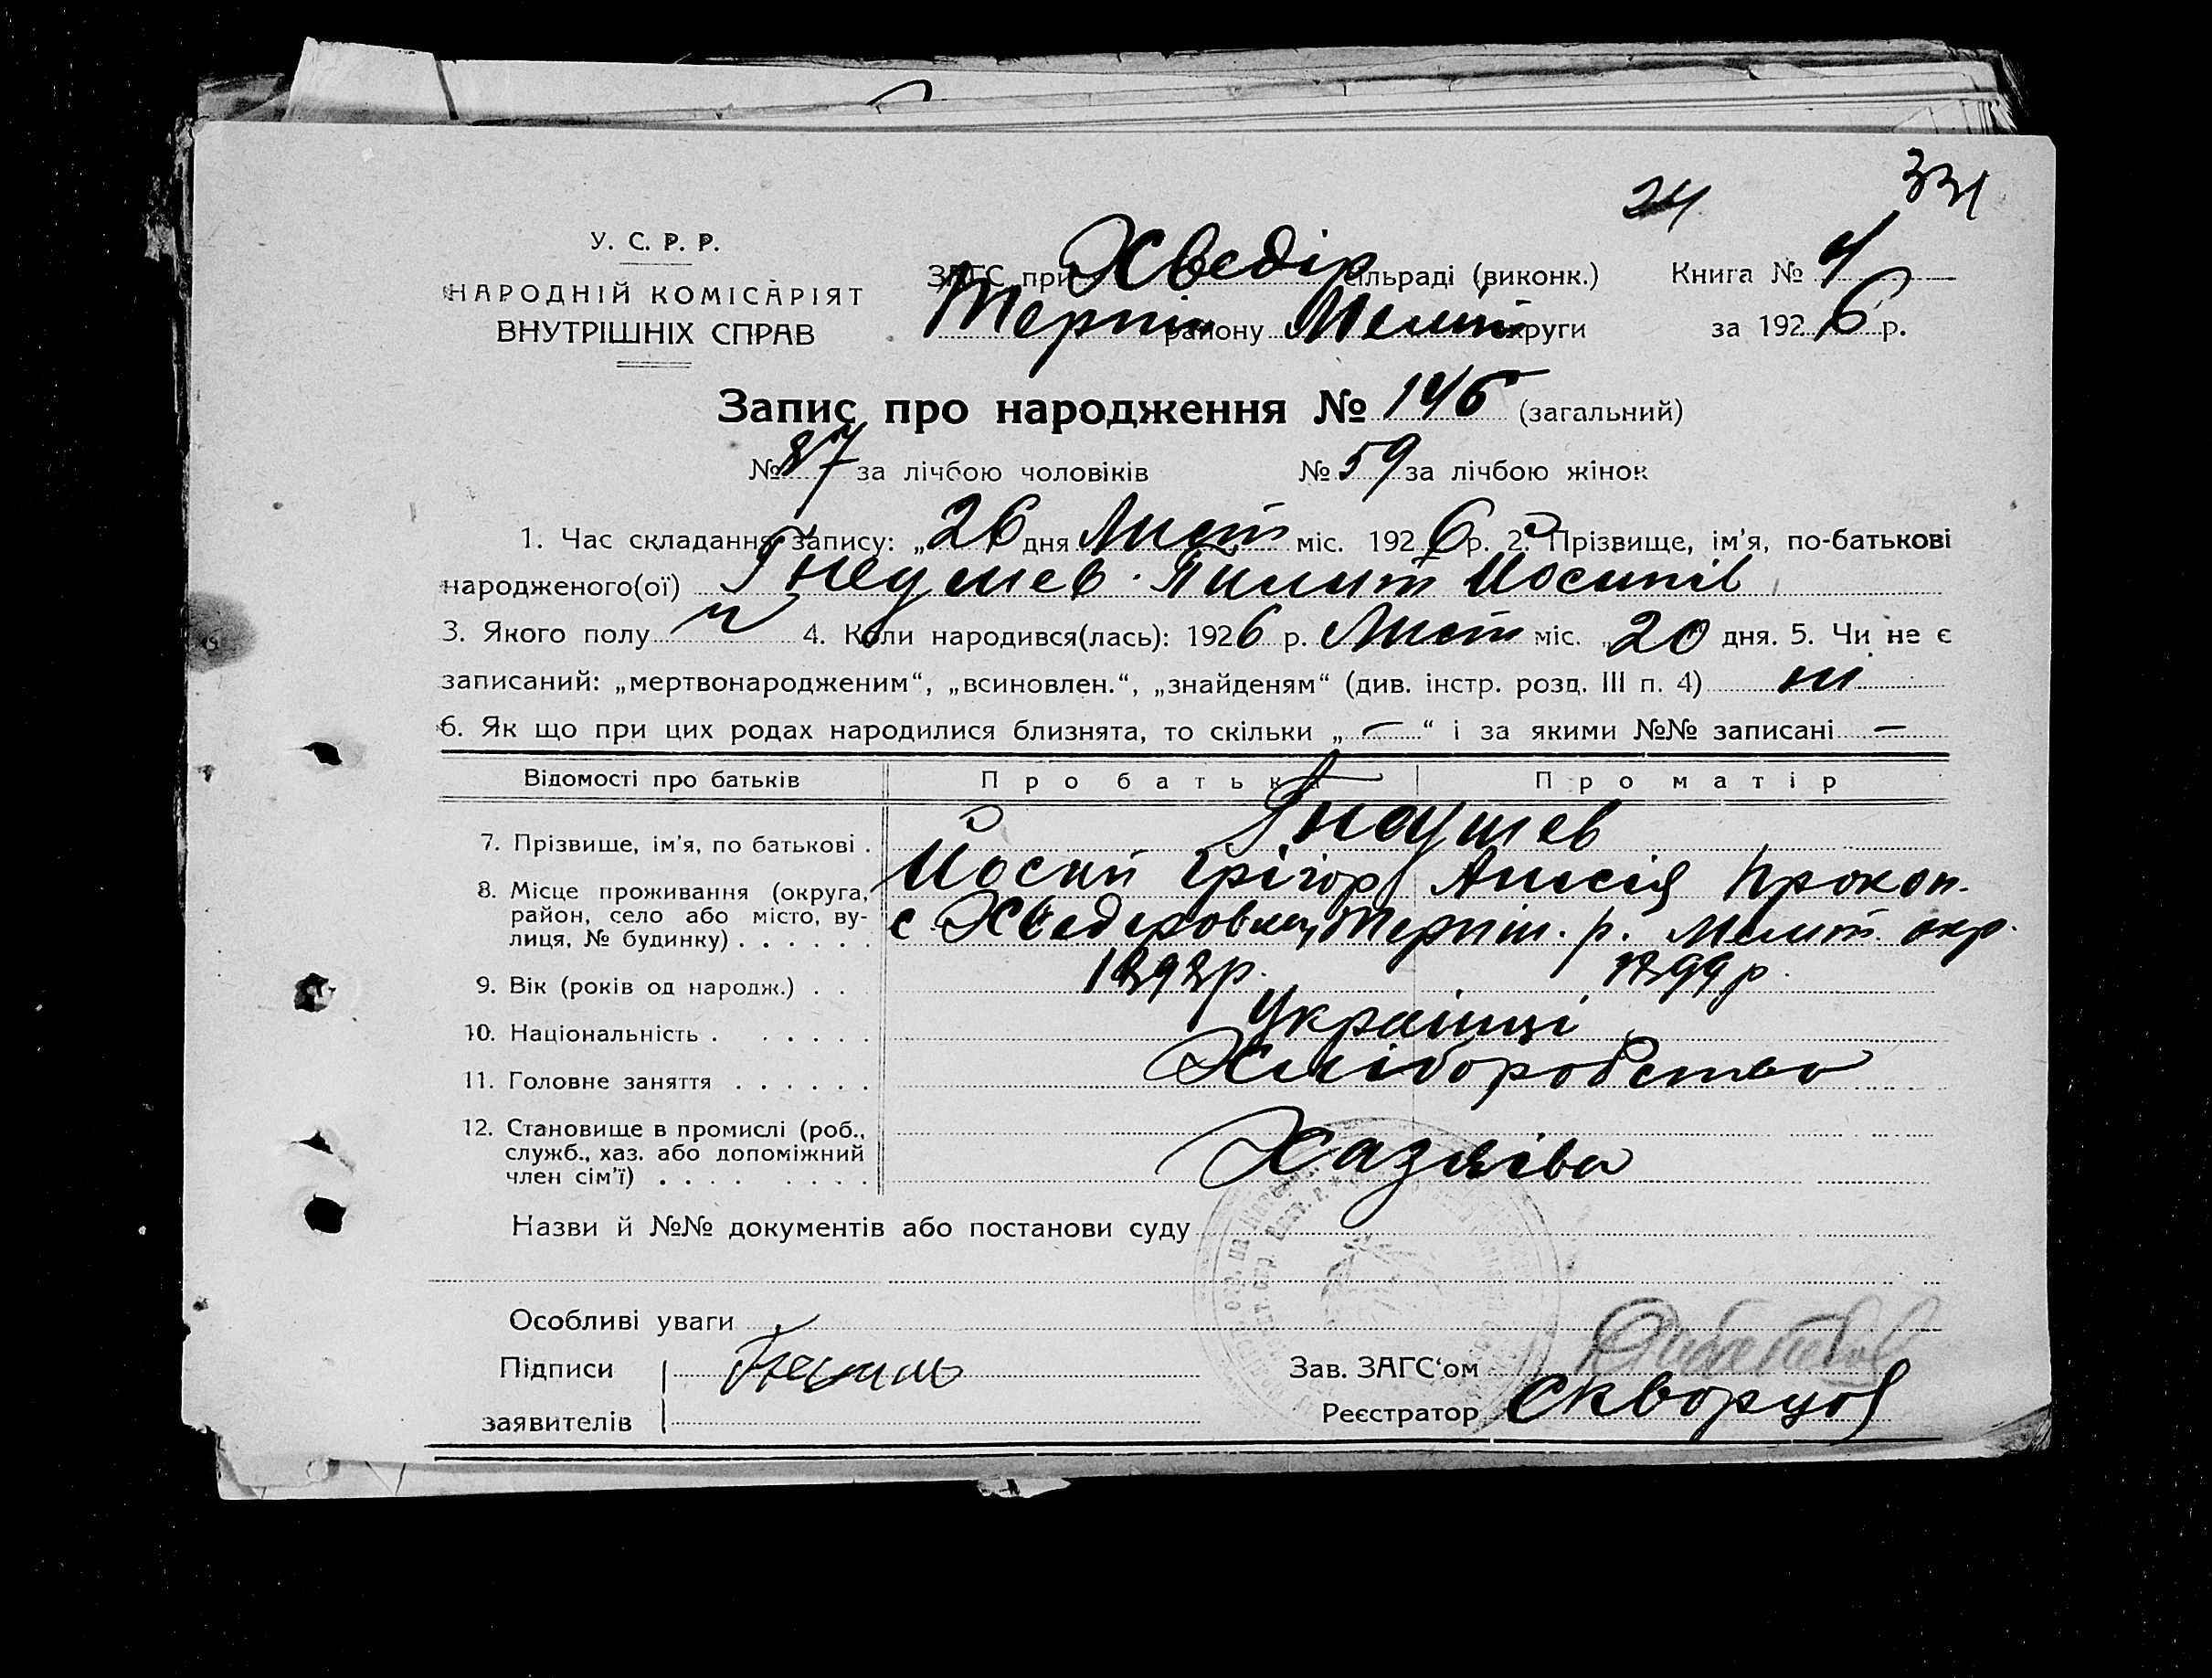 24 331
У. С. Р. Р.
НАРОДНІЙ КОМІСАРІЯТ
ВНУТРІШНІХ СПРАВ
ЗАГС при Хведір сільраді (виконк.) Книга № 4
Терпін району Меліт округи за 1926 р.
Запис про народження № 146 (загальний)
№ 87 за лічбою чоловіків № 59 за лічбою жінок
1. Час складання запису: „26 дня Лист міс. 1926 р. 2. Прізвище, ім'я, по-батькові
народженого(ої) Гнедушев Пилип Йосипів
3. Якого полу ч 4. Коли народився(лась): 1926 р. Лист міс. „20 дня. 5. Чи не є
записаний: „мертвонародженим“, „всиновлен.“, „знайденям“ (див. інстр. розд. III п. 4) ні
6. Як що при цих родах народилися близнята, то скільки „ — “ і за якими №№ записані —
Відомості про батьків Про батька Про матір
7. Прізвише, ім'я, по батькові . 
Йосип Грігор Анисія Прокоп.
8. Місце проживання (округа,
район, село або місто, ву-
лиця, № будинку) . . . . . . с Хведоровка, Терпін. р. Меліт. окр.
9. Вік (років од народж.) . . 1898р. 1899р.
10. Національність . . . . . . Українці
11. Головне заняття . . . . . . Хліборобство
12. Становище в промислі (роб.,
служб., хаз. або допоміжний
член сім'ї) . . . . . . . . Хазяїва
Назви й №№ документів або постанови суду
Особливі уваги
Підписи
заявителів
Зав. ЗАГС‘ом
Реєстратор Скворцов